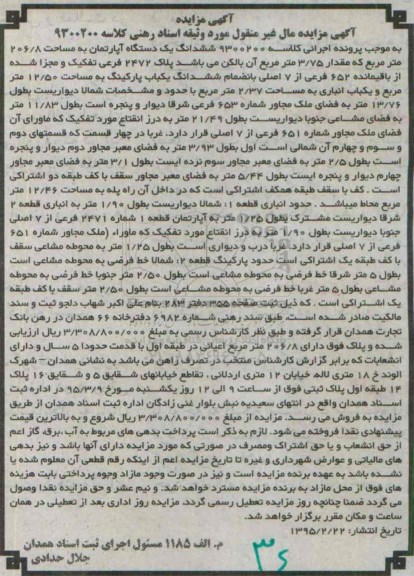 آگهی مزایده
آگهی مزایده مال غیر منقول مورد وثیقه اسناد رهنی کلاسه ۹۳۰۰۲۰۰
به موجب پرونده اجرائی کلاسه ۹۳۰۰۲۰۰ ششدانگ یک دستگاه آپارتمان به مساحت ۲۰۶/۸
متر مربع که مقدار ۳/۷۵ متر مربع آن بالکن می باشد پلاک ۲۴۷۲ فرعی تفکیک و مجزا شده
از باقیمانده ۶۵۲ فرعی از ۷ اصلی بانضمام ششدانگ یکباب پارکینگ به مساحت ۱۲/۵۰ متر
مربع و یکباب انباری به مساحت ۲/۳۷ متر مربع با حدود و مشخصات شمالا دیواریست بطول
۱۳/۷۶ متر به فضای ملک مجاور شماره ۶۵۳ فرعی شرقا دیوار و پنجره است بطول ۱۱/۸۳ متر
به فضای مشاعی جنوبا دیواریست بطول ۲۱/۴۹ متر به درز انقطاع مورد تفکیک که ماورای آن
فضای ملک مجاور شماره ۶۵۱ فرعی از ۷ اصلی قرار دارد. غربا در چهار قسمت که قسمتهای دوم
و سوم و چهارم آن شمالی است اول بطول ۳/۹۳ متر به فضای معبر مجاور دوم دیوار و پنجره
است بطول ۲/۵ متر به فضای معبر مجاور سوم نرده ایست بطول ۳/۱ متر به فضای معبر مجاور
چهارم دیوار و پنجره ایست بطول ۵/۴۴ متر به فضای معبر مجاور سقف با کف طبقه دو اشتراکی
است. کف با سقف طبقه همکف اشتراکی است که در داخل آن راه پله به مساحت ۱۲/۴۶ متر
مربع محاط میباشد. حدود انباری قطعه ۱: شمالا دیواریست بطول ۱/۹۰ متر به انباری قطعه ۲
شرقا دیواریست مشترک بطول ۱/۲۵ متر به آپارتمان قطعه ۱ شماره ۲۴۷۱ فرعی از ۷ اصلی
جنوبا دیواریست بطول ۱/۹۰ متر به درز انقطاع مورد تفکیک که ماوراء (ملک مجاور شماره ۶۵۱
فرعی از ۷ اصلی قرار دارد. غربا درب و دیواری است بطول ۱/۲۵ متر به محوطه مشاعی سقف
با کف طبقه یک اشتراکی است حدود پارکینگ قطعه ۲: شمالا خط فرضی به محوطه مشاعی است
بطول ۵ متر شرقا خط فرضی به محوطه مشاعی است بطول ۲/۵۰ متر جنوبا خط فرضی به محوطه
مشاعی بطول ۵ متر غربا خط فرضی به محوطه مشاعی است بطول ۲/۵۰ متر سقف با کف طبقه
یک اشتراکی است. که ذیل ثبت صفحه ۳۵۵ دفتر ۲۸۳ بنام علی اکبر شهاب دلجو ثبت و سند
مالکیت صادر شده است. طبق سند رهنی شماره ۶۹۸۲ دفترخانه ۶۶ همدان در رهن بانک
تجارت همدان قرار گرفته و طبق نظر کارشناس رسمی به مبلغ ۳/۳۰۸/۸۰۰/۰۰۰ ریال ارزیابی
شده و پلاک فوق دارای ۲۰۶/۸ متر مربع اعیانی در طبقه اول با قدمت حدودا ۵ سال و دارای
انشعابات که برابر گزارش کارشناس منتخب در تصرف راهن می باشد به نشانی همدان - شهرک
الوند خ ۱۸ متری لاله خیابان ۱۲ متری اردلانی، تقاطع خیابانهای شقایق ۵ و شقایق ۱۶ پلاک
۱۴ طبقه اول پلاک ثبتی فوق از ساعت ۹ الی ۱۲ روز یکشنبه مورخ ۹۵/۳/۹ در اداره ثبت
اسناد همدان واقع در انتهای سعیدیه نبش بلوار غنی زادگان اداره ثبت اسناد همدان از طریق
مزایده به فروش می رسد. مزایده از مبلغ ۳/۳۰۸/۸۰۰/۰۰۰ ریال شروع و به بالاترین قیمت
پیشنهادی نقدا فروخته می شود. لازم به ذکر است پرداخت بدهی های مربوط به آب، برق، گاز اعم
از حق انشعاب و یا حق اشتراک ومصرف در صورتی که مورد مزایده دارای آنها باشد و نیز بدهی
های مالیاتی و عوارض شهرداری و غیره تا تاریخ مزایده اعم از اینکه رقم قطعی آن معلوم شده یا
نشده باشد به عهده برنده مزایده است و نیز در صورت وجود مازاد وجوه پرداختی بابت هزینه
های فوق از محل مازاد به برنده مزایده مسترد خواهد شد. و نیم عشر و حق مزایده نقدا وصول
می گردد ضمنا چنانچه روز مزایده تعطیل رسمی گردد، مزایده روز اداری بعد از تعطیلی در همان
ساعت و مکان مقرر برگزار خواهد شد.
تاریخ انتشار: ۱۳۹۵/۲/۲۲
م. الف ۱۱۸۵ مسئول اجرای ثبت اسناد همدان
جلال حدادی